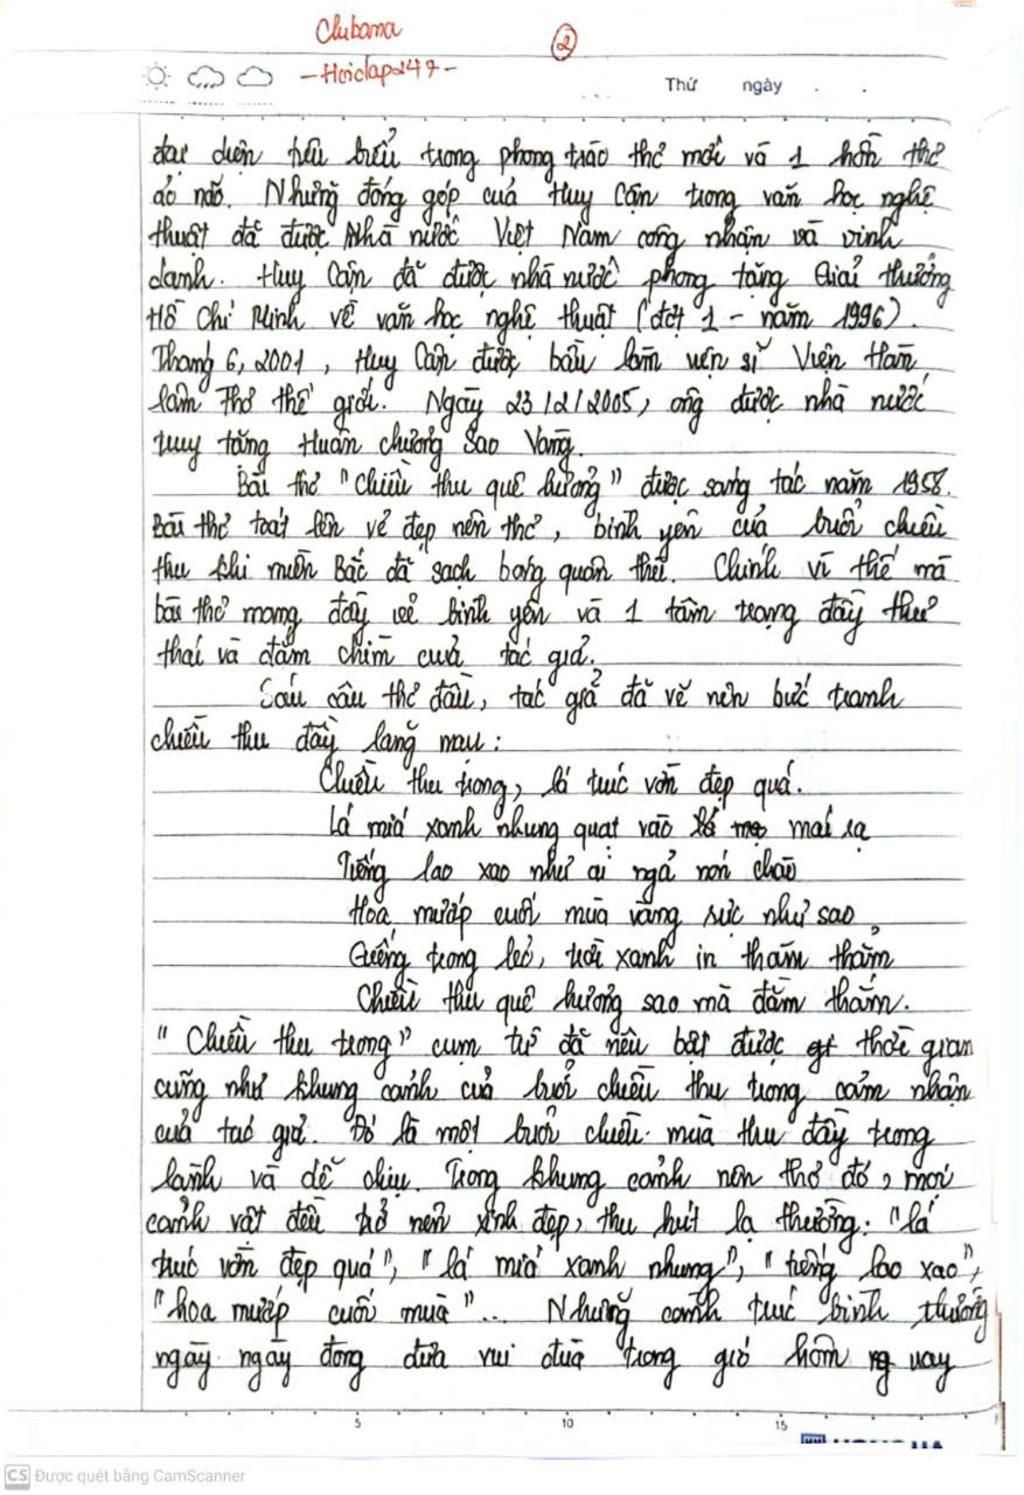 Clubama
②
-Hoidap247-
Thứ ngày
đại diện tiêu biểu trong phong trào thơ mới và 1 hồn thơ
ảo não. Những đóng góp của Huy Cận trong văn học nghệ
thuật đã được Nhà nước Việt Nam công nhận và vinh
danh. Huy Cận đã được nhà nước phong tặng Giải thưởng
Hồ Chí Minh về văn học nghệ thuật (đợt 1 - năm 1996).
Tháng 6, 2001, Huy Cận được bầu làm viện sĩ Viện Hàn
lâm Thơ thế giới. Ngày 23/2/2005, ông được nhà nước
truy tặng Huân chương Sao Vàng.
Bài thơ "Chiều thu quê hương" được sáng tác năm 1958.
Bài thơ toát lên vẻ đẹp nên thơ, bình yên của buổi chiều
thu khi miền Bắc đã sạch bóng quân thù. Chính vì thế mà
bài thơ mang đầy vẻ bình yên và 1 tâm trạng đầy thư
thái và đắm chìm của tác giả.
Sáu câu thơ đầu, tác giả đã vẽ nên bức tranh
chiều thu đầy lãng mạn:
Chiều thu trong, lá trúc vờn đẹp quá.
Lá mía xanh nhung quạt vào mái rạ
Tiếng lao xao như ai ngả nón chào
Hoa mướp cuối mùa vàng rực như sao
Giếng trong lẻo, trời xanh in thăm thẳm
Chiều thu quê hương sao mà đằm thắm.
"Chiều thu trong" cụm từ đã nêu bật được thời gian
cũng như khung cảnh của buổi chiều thu trong cảm nhận
của tác giả. Đó là một buổi chiều mùa thu đầy trong
lành và dễ chịu. Trong khung cảnh nên thơ đó, mọi
cảnh vật đều trở nên xinh đẹp, thu hút lạ thường: "lá
trúc vờn đẹp quá", "lá mía xanh nhung", "tiếng lao xao",
"hoa mướp cuối mùa"... Những cành trúc bình thường
ngày ngày đong đưa vui đùa trong gió hôm nay
5 10 15
CS Được quét bằng CamScanner